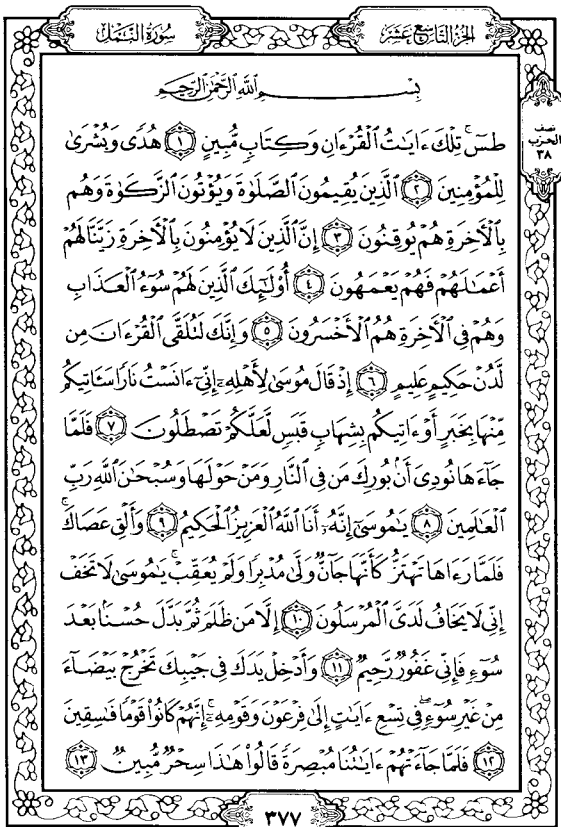 الجزء التاسع عشر
سورة النمل
بِسْمِ ٱللَّهِ ٱلرَّحْمَٰنِ ٱلرَّحِيمِ
نصف
الحزب
٣٨
طسٓۚ تِلْكَ ءَايَٰتُ ٱلْقُرْءَانِ وَكِتَابٍ مُّبِينٍ ١ هُدًى وَبُشْرَىٰ
لِلْمُؤْمِنِينَ ٢ ٱلَّذِينَ يُقِيمُونَ ٱلصَّلَوٰةَ وَيُؤْتُونَ ٱلزَّكَوٰةَ وَهُم
بِٱلْءَاخِرَةِ هُمْ يُوقِنُونَ ٣ إِنَّ ٱلَّذِينَ لَا يُؤْمِنُونَ بِٱلْءَاخِرَةِ زَيَّنَّا لَهُمْ
أَعْمَٰلَهُمْ فَهُمْ يَعْمَهُونَ ٤ أُو۟لَٰٓئِكَ ٱلَّذِينَ لَهُمْ سُوٓءُ ٱلْعَذَابِ
وَهُمْ فِى ٱلْءَاخِرَةِ هُمُ ٱلْأَخْسَرُونَ ٥ وَإِنَّكَ لَتُلَقَّى ٱلْقُرْءَانَ مِن
لَّدُنْ حَكِيمٍ عَلِيمٍ ٦ إِذْ قَالَ مُوسَىٰ لِأَهْلِهِۦٓ إِنِّىٓ ءَانَسْتُ نَارًا سَـَٔاتِيكُم
مِّنْهَا بِخَبَرٍ أَوْ ءَاتِيكُم بِشِهَابٍ قَبَسٍ لَّعَلَّكُمْ تَصْطَلُونَ ٧ فَلَمَّا
جَآءَهَا نُودِىَ أَنۢ بُورِكَ مَن فِى ٱلنَّارِ وَمَنْ حَوْلَهَا وَسُبْحَٰنَ ٱللَّهِ رَبِّ
ٱلْعَٰلَمِينَ ٨ يَٰمُوسَىٰٓ إِنَّهُۥٓ أَنَا ٱللَّهُ ٱلْعَزِيزُ ٱلْحَكِيمُ ٩ وَأَلْقِ عَصَاكَۚ
فَلَمَّا رَءَاهَا تَهْتَزُّ كَأَنَّهَا جَآنٌّ وَلَّىٰ مُدْبِرًا وَلَمْ يُعَقِّبْۚ يَٰمُوسَىٰ لَا تَخَفْ
إِنِّى لَا يَخَافُ لَدَىَّ ٱلْمُرْسَلُونَ ١٠ إِلَّا مَن ظَلَمَ ثُمَّ بَدَّلَ حُسْنًۢا بَعْدَ
سُوٓءٍ فَإِنِّى غَفُورٌ رَّحِيمٌ ١١ وَأَدْخِلْ يَدَكَ فِى جَيْبِكَ تَخْرُجْ بَيْضَآءَ
مِنْ غَيْرِ سُوٓءٍۖ فِى تِسْعِ ءَايَٰتٍ إِلَىٰ فِرْعَوْنَ وَقَوْمِهِۦٓۚ إِنَّهُمْ كَانُوا۟ قَوْمًا فَٰسِقِينَ
١٢ فَلَمَّا جَآءَتْهُمْ ءَايَٰتُنَا مُبْصِرَةً قَالُوا۟ هَٰذَا سِحْرٌ مُّبِينٌ ١٣
٣٧٧